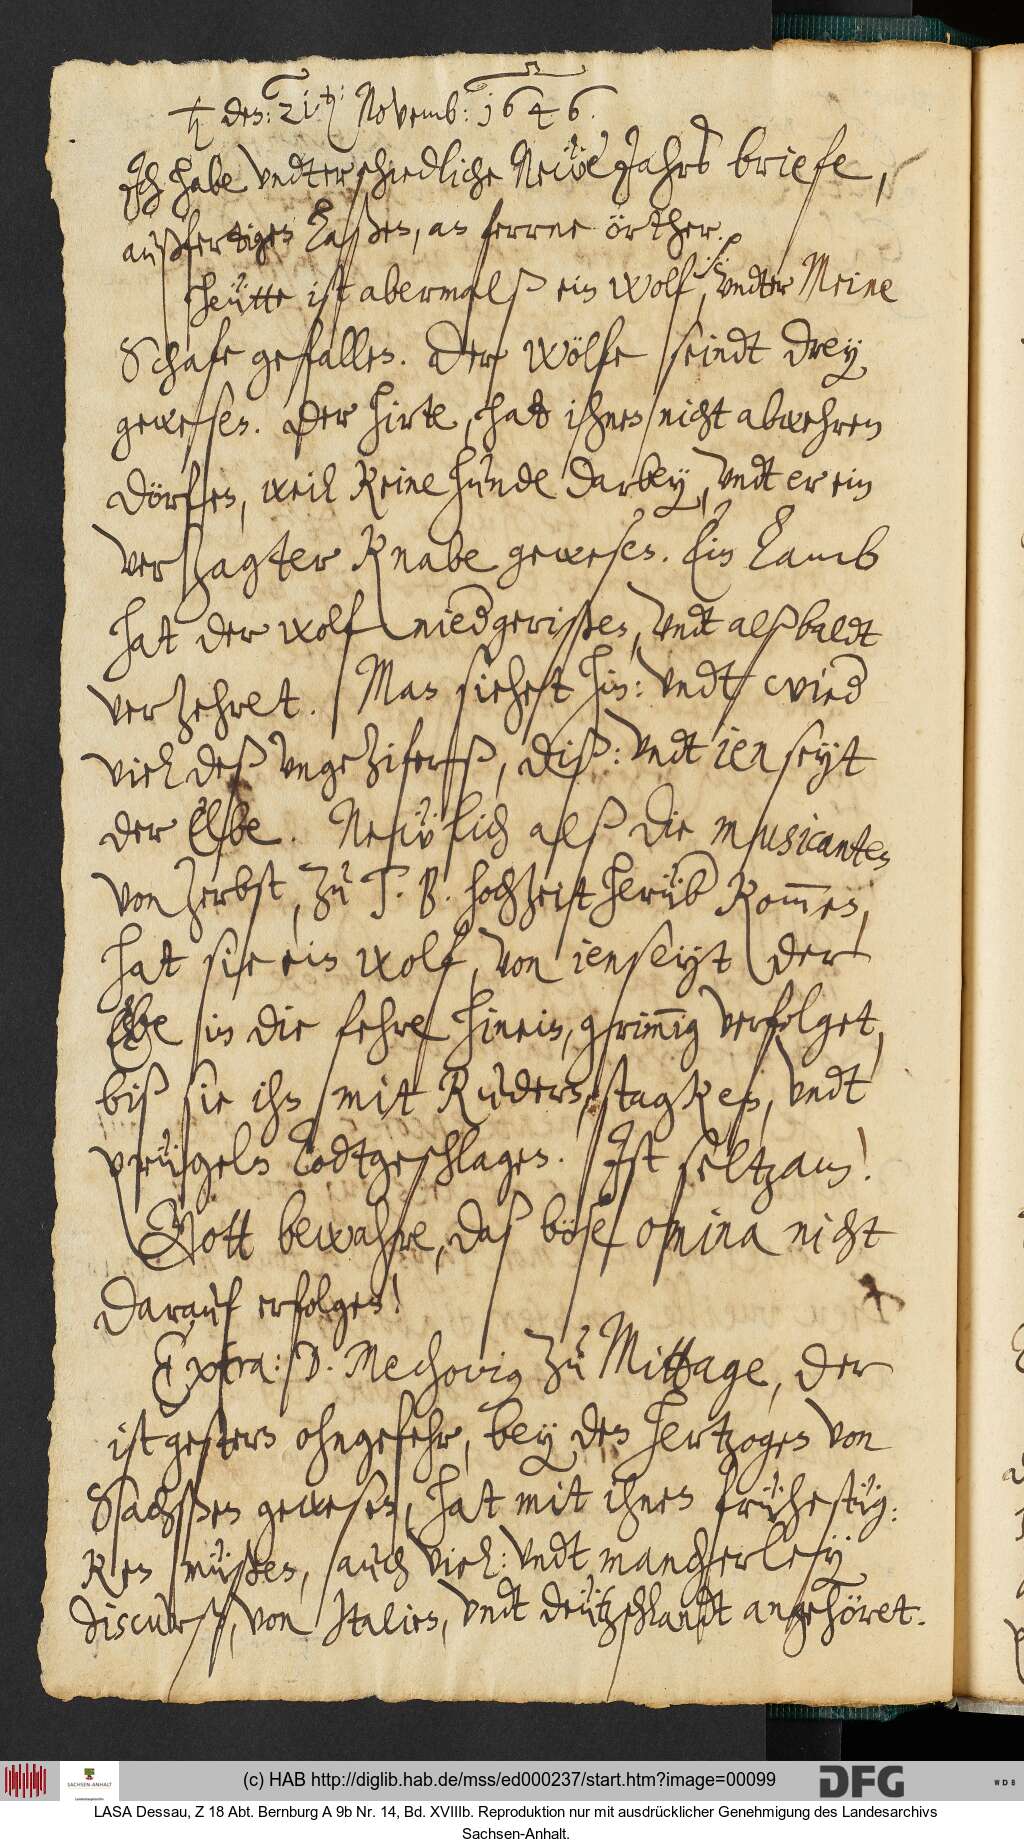 ♄ den: 21.ten: Novemb: 1646.
Ich habe vndterschiedliche Neẅe Jahrs briefe,
außfertigen laßen, an ferrne örther.
Heütte ist abermalß ein wolf, vndter Meine
Schafe gefallen. Der wölfe seindt drey
gewesen. Der hirte, hat ihnen nicht abwehren
dörfen, weil keine hunde darbey, vndt er ein
verzagter Knabe gewesen. Ein Lamb
hat der wolf niedgerißen, vndt alßbaldt
verzehret. Man siehet hin: vndt wied
viel deß vngeziferß, diß: vndt ienseyt
der Elbe. Neẅlich alß die musicanten
von Zerbst, zu T. B. hochzeit herüb kom̅en,
hat sie ein wolf, von ienseyt der
Elbe in die fehre hinein, grim̅ig verfolget,
biß sie ihn mit Rudern, stagken, vndt
prügeln todtgeschlagen. Ist seltzam!
Gott bewahre, daß böse omina nicht
darauf erfolgen!
Extra: D. Mechovig zu Mittage, der
ist gestern ohngefehr, bey den hertzogen von
Sachßen gewesen, hat mit ihnen frühestüg:
ken müßen, auch viel: vndt mancherley
discurß, von Italien, vndt deützschlandt angehöret.
SACHSEN-ANHALT
(c) HAB http://diglib.hab.de/mss/ed000237/start.htm?image=00099
DFG
WDB
LASA Dessau, Z 18 Abt. Bernburg A 9b Nr. 14, Bd. XVIIIb. Reproduktion nur mit ausdrücklicher Genehmigung des Landesarchivs
Sachsen-Anhalt.